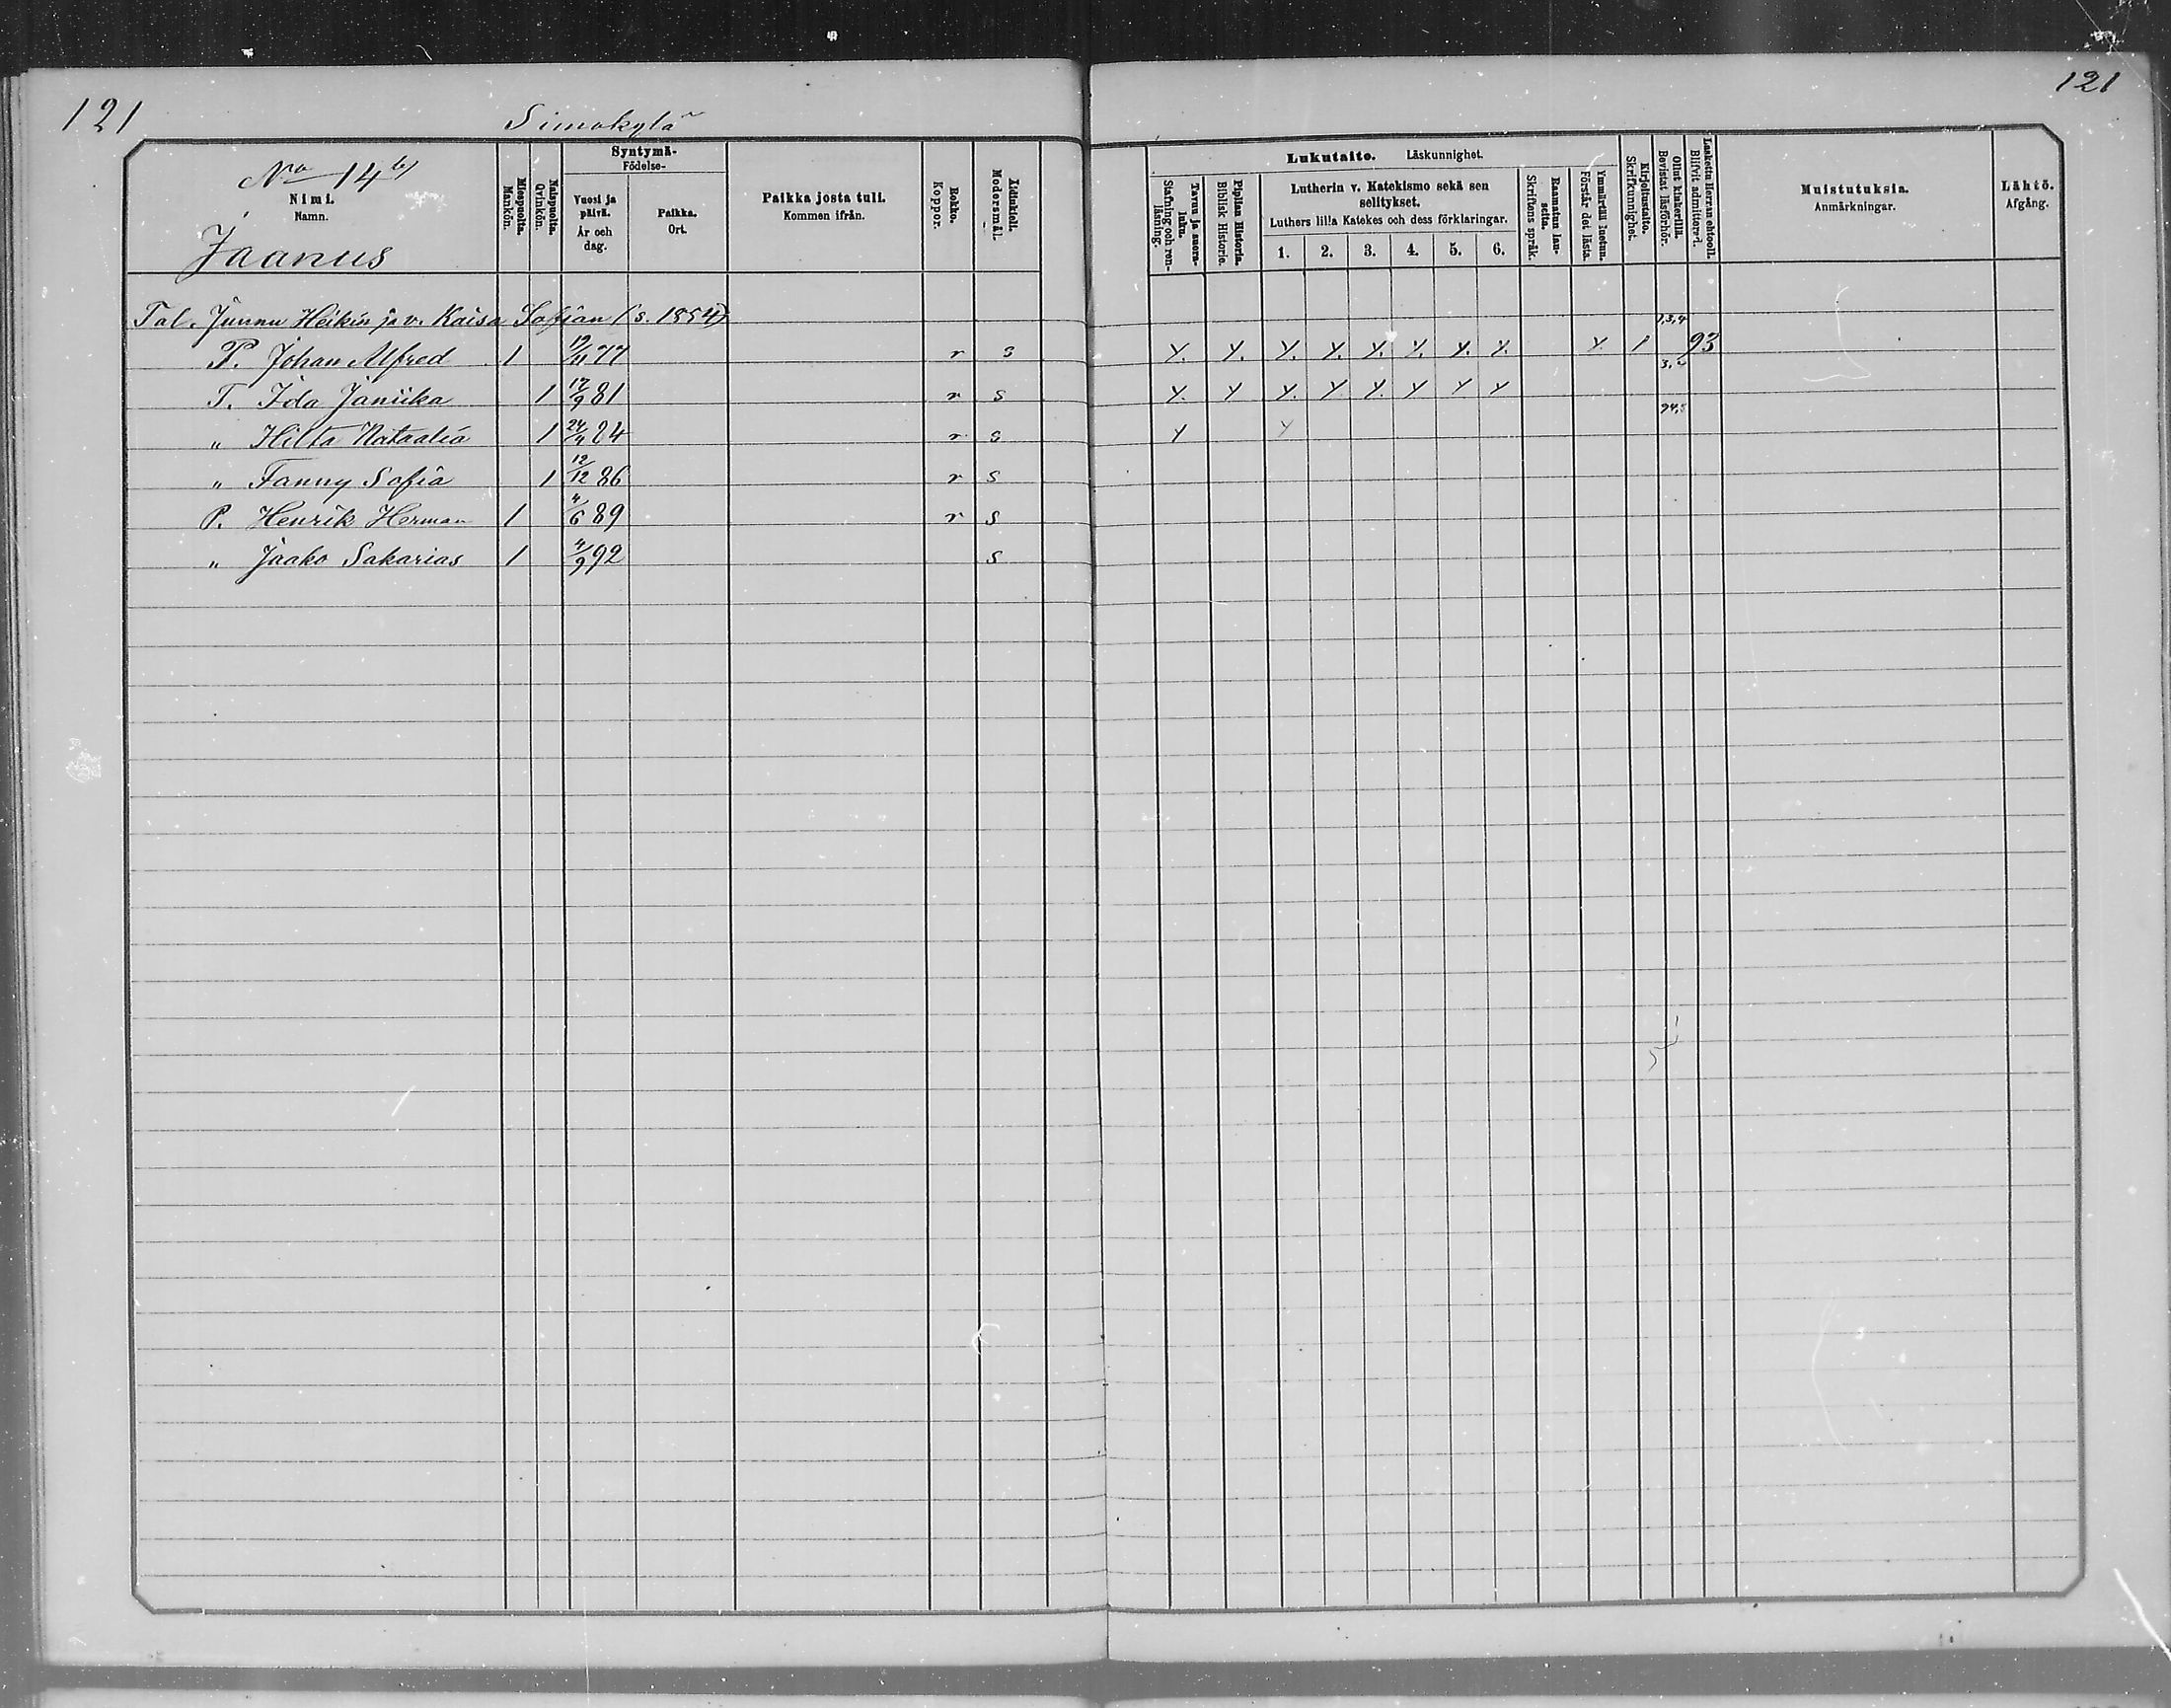 121
121
Simokylä
No 14 b)
Nimi.
Namn.
Jaanus
Miespuolia.
Mankön.
Naispuolia.
Qvinkön.
Syntymä-
Födelse-
Vuosi ja päivä.
År och dag.
Paikka.
Ort.
Paikka josta tuli.
Kommen ifrån.
Rokko.
Koppor.
Äidinkieli.
Modersmål.
Lukutaito. Läskunnighet.
Tavuu ja suora-luku.
Stafning och ren-läsning.
Piplian Historia.
Biblisk Historie.
Lutherin v. Katekismo sekä sen selitykset.
Luthers lilla Katekes och dess förklaringar.
1. 2. 3. 4. 5. 6.
Raamatun lau-seita.
Skriftens språk.
Ymmärtää luetun.
Förstår det lästa.
Kirjoitustaito.
Skrifkunnighet.
Ollut kinkerillä.
Bevistat läsförhör.
Laskettu Herran ehtooll.
Blifvit admitterad.
Muistutuksia.
Anmärkningar.
Lähtö.
Afgång.
Tal. Junnu Heikin ja v. Kaisa Sofian (s. 1854)
P. Johan Alfred 1 19/11 77 r s Y. Y. Y. Y. Y. Y. Y. Y. Y. 1 1,3,4 93
T. Ida Janiika 1 12/9 81 r s Y. Y Y. Y. Y. Y Y Y
" Hilta Nataalia 1 24/4 84 r s Y Y
" Fanny Sofia 1 12/12 86 r s
P. Henrik Herman 1 4/6 89 r s
" Jaako Sakarias 1 4/9 92 s